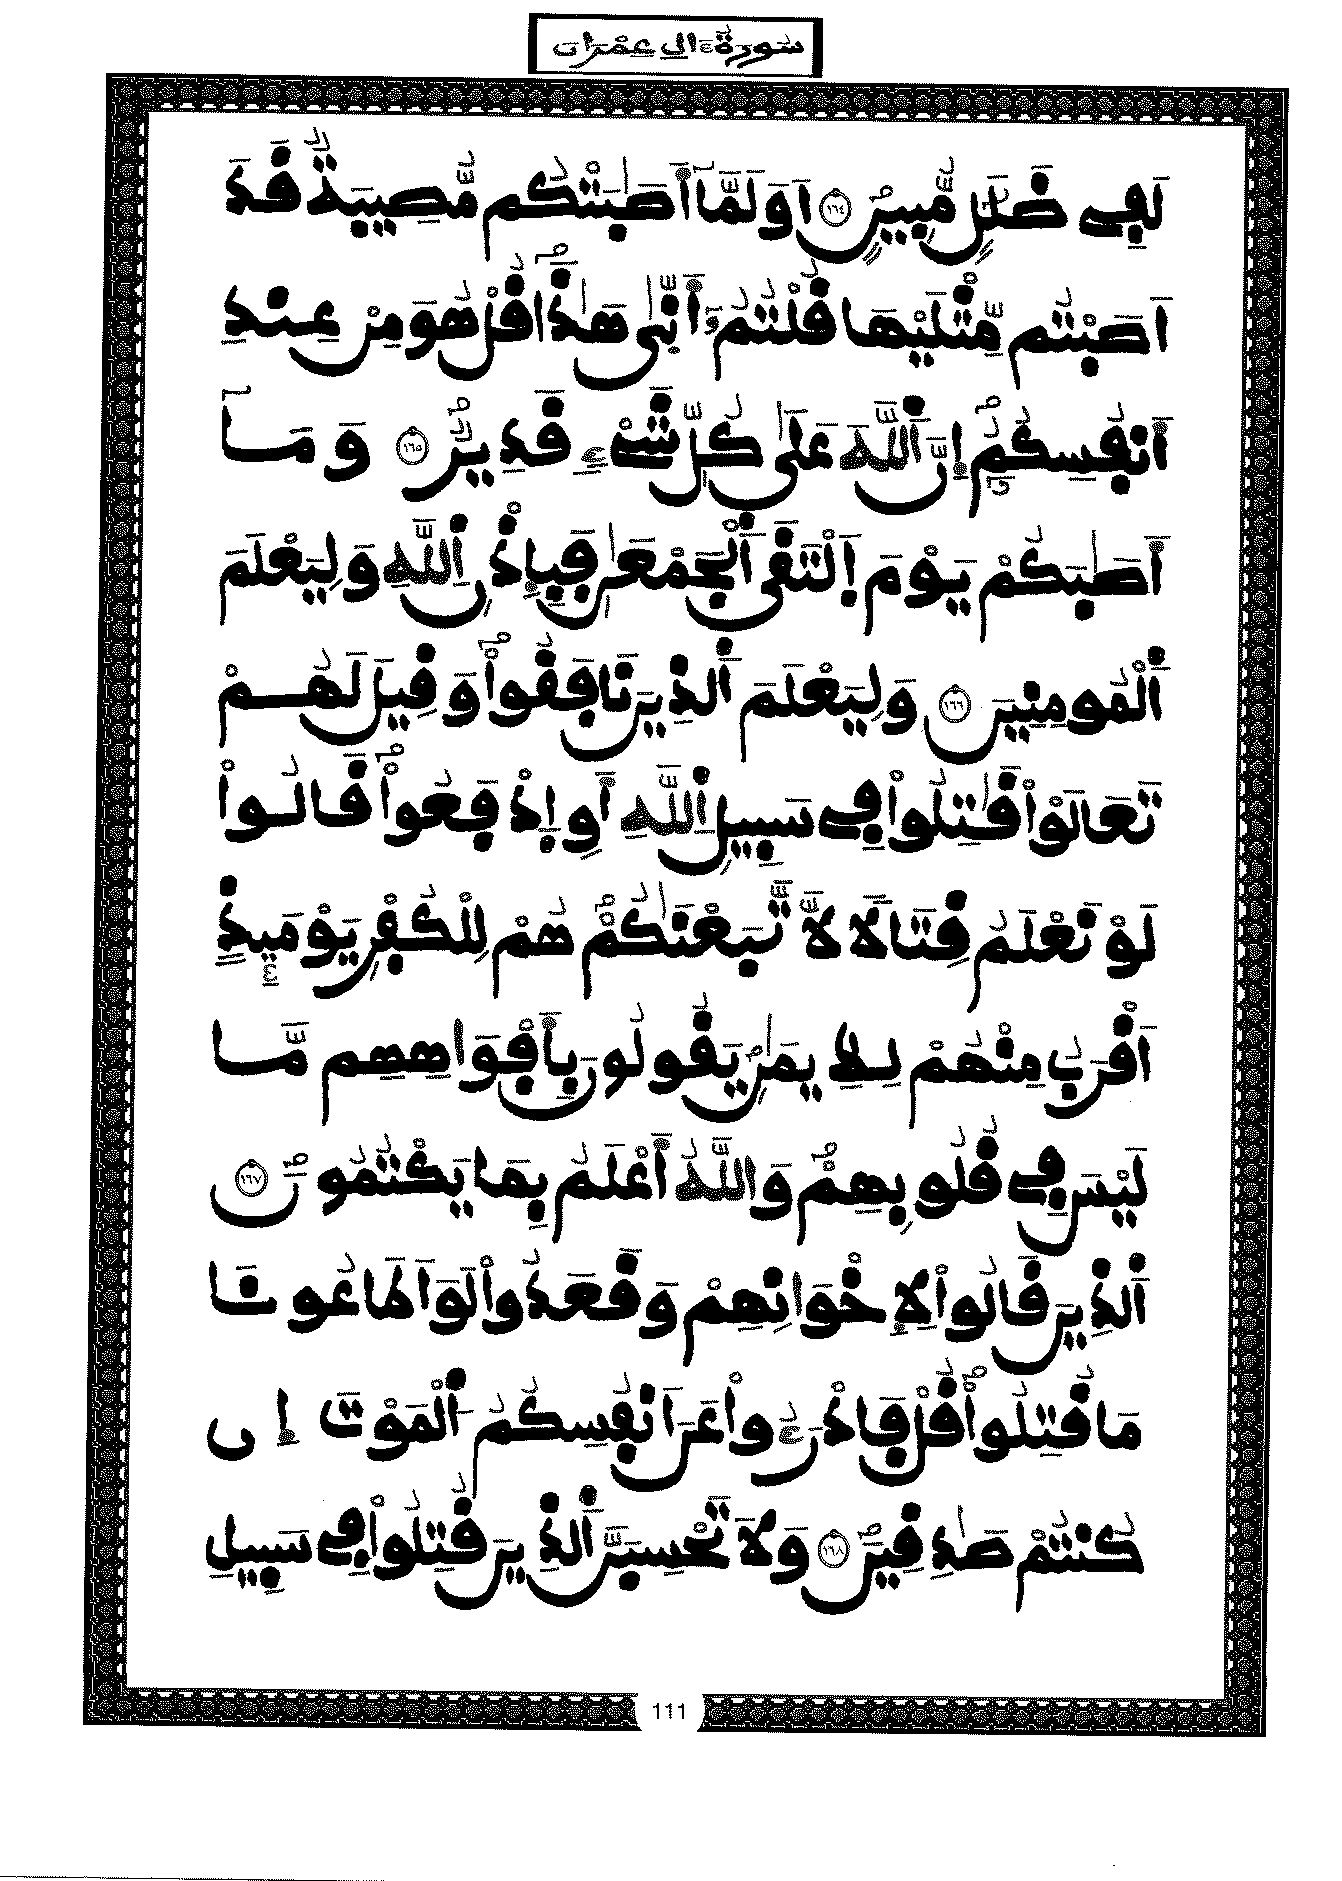 سورة ءال عمران
لَفِے ضَلَٰلٖ مُّبِينٍۖ ١٦٤ اَوَلَمَّآ أَصَٰبَتْكُم مُّصِيبَةٞ قَدَ
اَصَبْتُم مِّثْلَيْهَا قُلْتُمُۥٓ أَنّ۪ىٰ هَٰذَاۖ قُلْ هُوَ مِنْ عِندِ
أَنفُسِكُمُۥٓۖ إِنَّ اَ۬للَّهَ عَلَىٰ كُلِّ شَےْءٖ قَدِيرٞۖ ١٦٥ وَمَآ
أَصَٰبَكُمْ يَوْمَ اَ۪لْتَقَي اَ۬لْجَمْعَٰنِ فَبِإِذْنِ اِ۬للَّهِ وَلِيَعْلَمَ
اَ۬لْمُومِنِينَ ١٦٦ وَلِيَعْلَمَ اَ۬لذِينَ نَافَقُواْۖ وَقِيلَ لَهُمْ
تَعَالَوْاْ قَٰتِلُواْ فِے سَبِيلِ اِ۬للَّهِ أَوِ اِ۪دْفَعُواْۖ قَالُواْ
لَوْ نَعْلَمُ قِتَالاٗ لَّاتَّبَعْنَٰكُمْۖ هُمْ لِلْكُفْرِ يَوْمَئِذٍ
أَقْرَبُ مِنْهُمْ لِلِايمَٰنِۖ يَقُولُونَ بِأَفْوَاهِهِم مَّا
لَيْسَ فِے قُلُوبِهِمْۖ وَاللَّهُ أَعْلَمُ بِمَا يَكْتُمُونَۖ ١٦٧
اَ۬لذِينَ قَالُواْ لِإِخْوَانِهِمْ وَقَعَدُواْ لَوَ اَطَاعُونَا
مَا قُتِلُواْۖ قُلْ فَادْرَءُواْ عَنَ اَنفُسِكُمُ اُ۬لْمَوْتَ إِن
كُنتُمْ صَٰدِقِينَۖ ١٦٨ وَلَا تَحْسِبَنَّ اَ۬لذِينَ قُتِلُواْ فِے سَبِيلِ
111